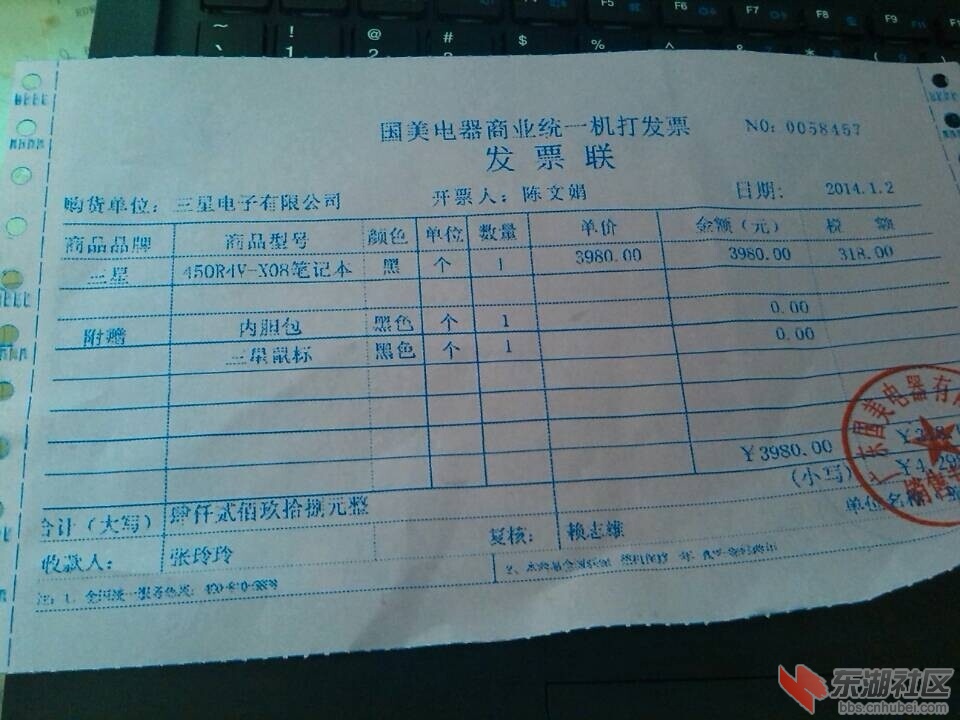 F5 F6 F7 F8 F9 F10
~ ! @ # $ % ^ & *
国美电器商业统一机打发票 NO: 0058457
发票联
购货单位: 三星电子有限公司 开票人: 陈文娟 日期: 2014.1.2
商品品牌 商品型号 颜色 单位 数量 单价 金额(元) 税 额
三星 450R4V-X08笔记本 黑 个 1 3980.00 3980.00 318.00
内胆包 黑色 个 1 0.00
附赠 三星鼠标 黑色 个 1 0.00
¥3980.00
(小写)
合计(大写) 肆仟贰佰玖拾捌元整
单位名称
收款人: 张玲玲 复核: 赖志雄
注: 1. 全国统一服务热线:
广东国美电器有限
销售
东湖社区
bbs.cnhubei.com